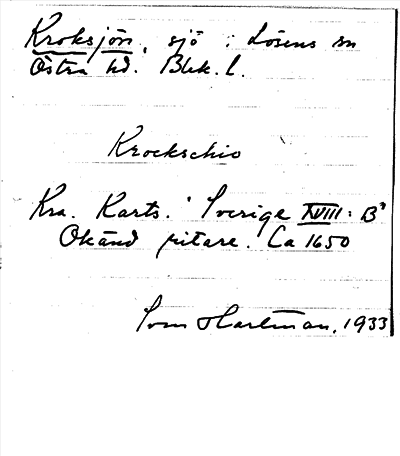 Kroksjön, sjö i Lösens sn
Östra hd. Blek. l.
Krockschio
Kra. Karts. Sverige XVIII: B
Okänd ritare. Ca 1650
Hartman, 1933